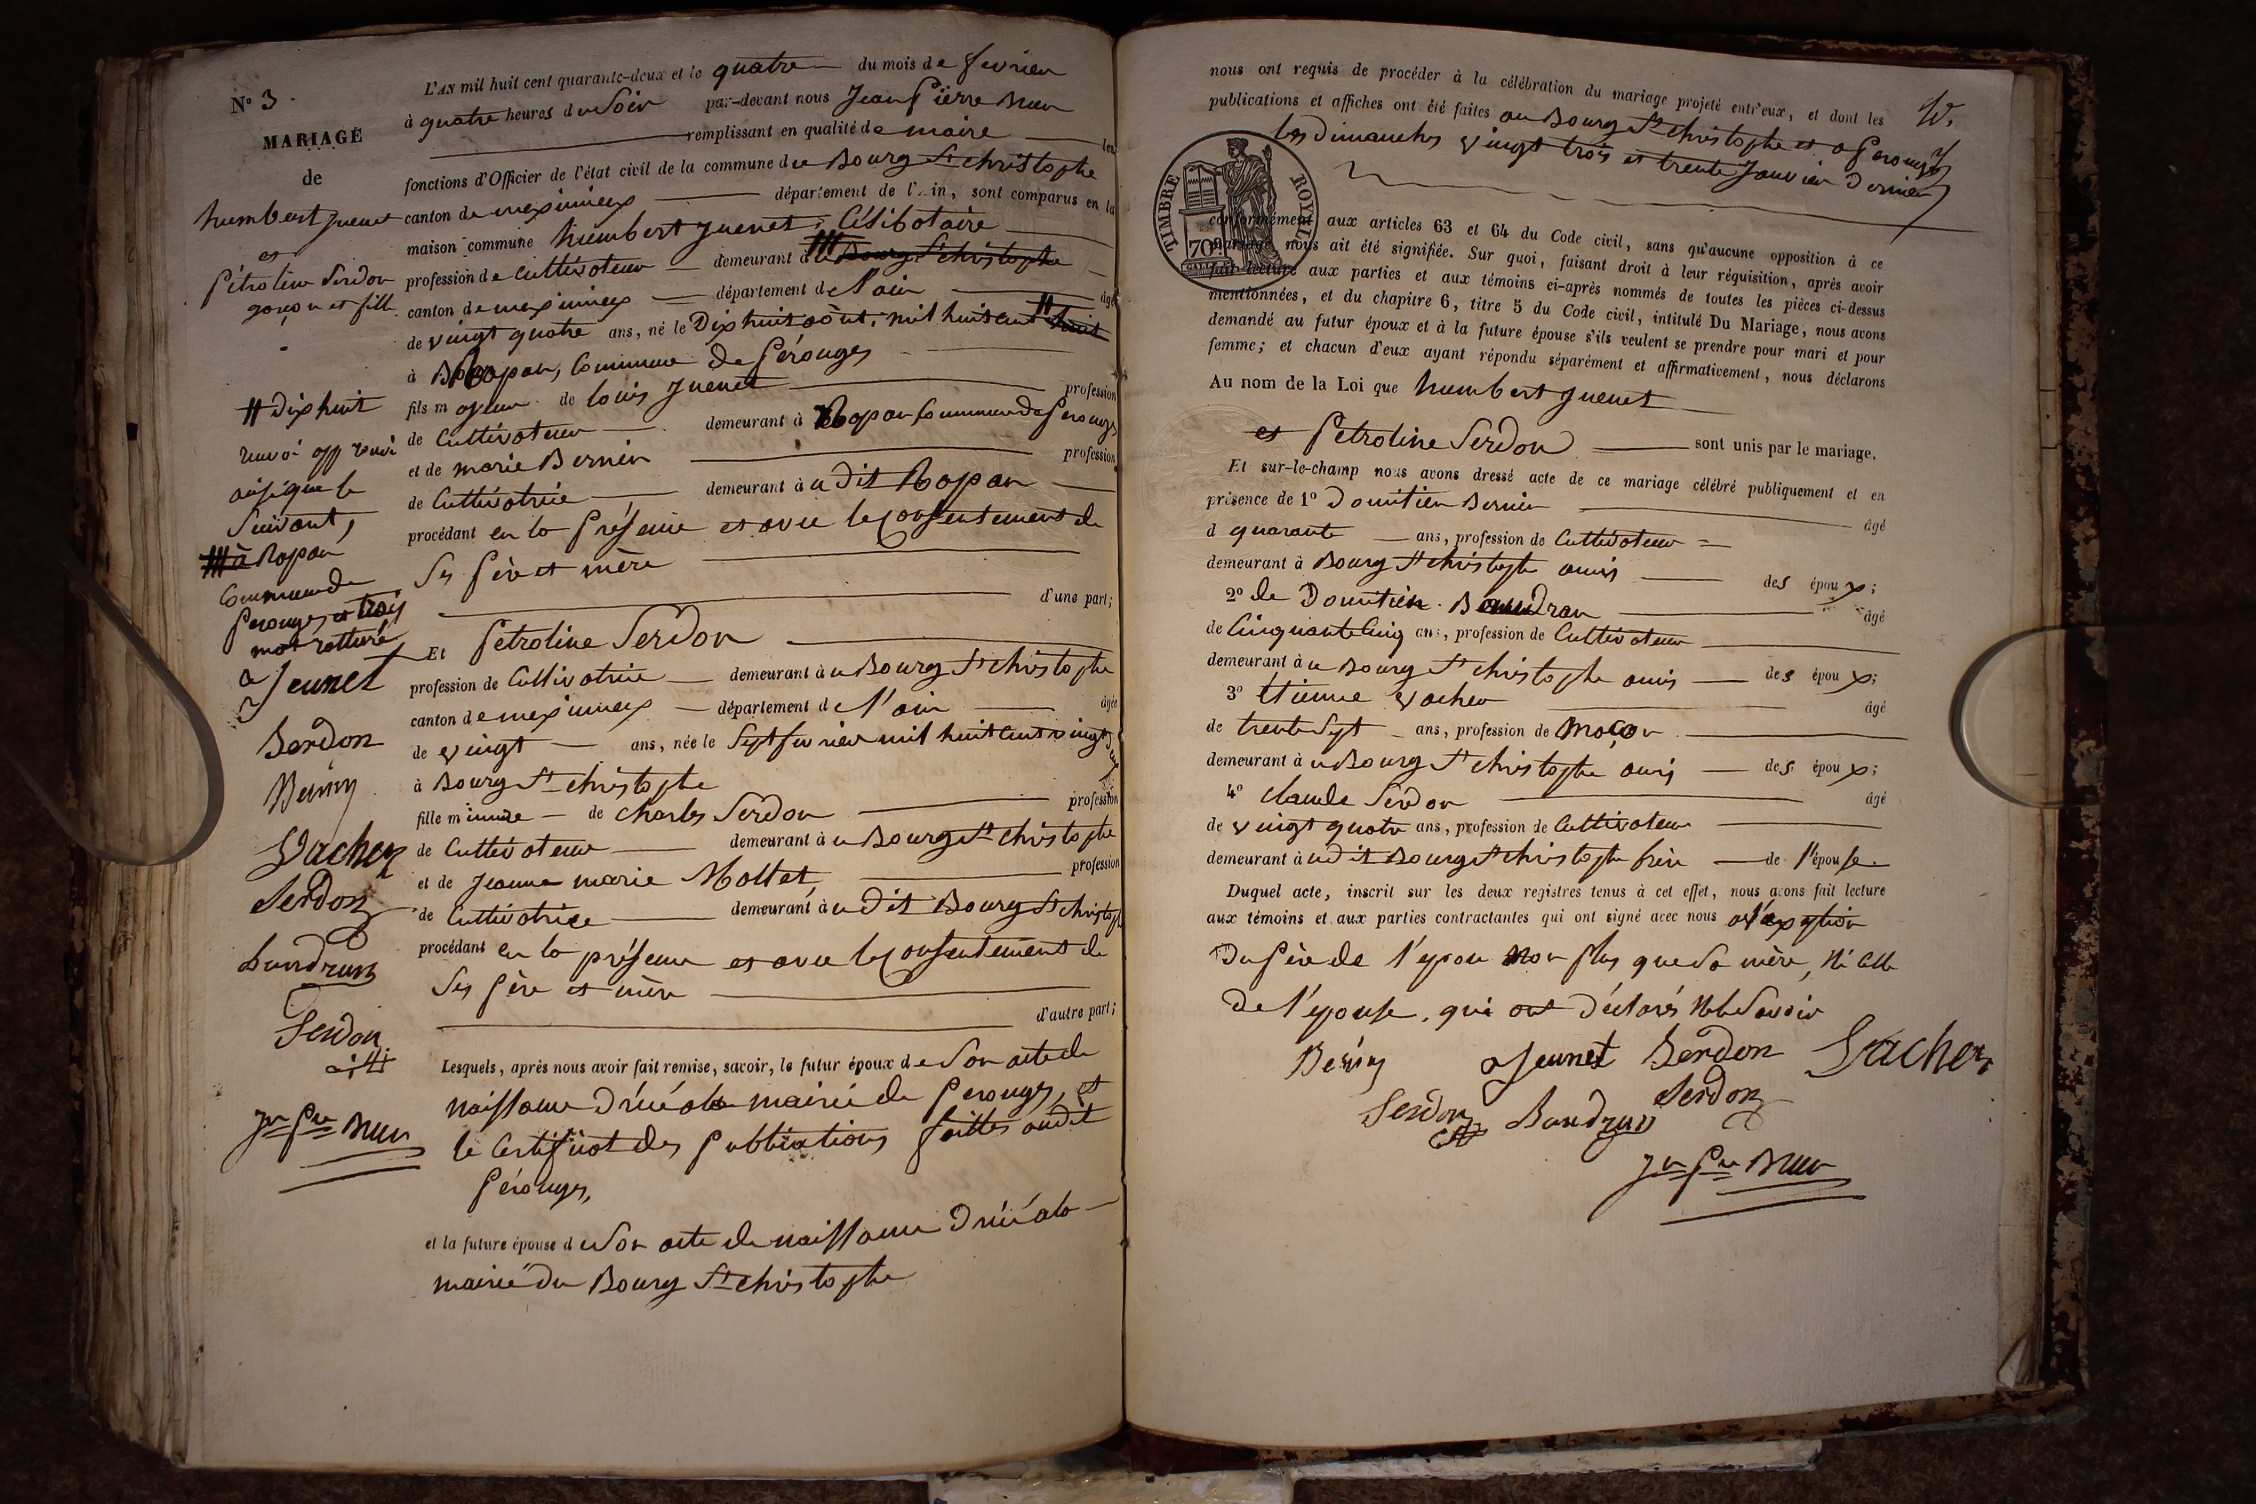 N° 3.
MARIAGE
de
humbert juenet
et
Pétroline Serdon
garçon et fille.
# Dix huit
renvoi approuvé
ainsi que le
Suivant,
à Ropan
Commune de
Perouges et trois
mot rotturé
a Jeunet
Serdon
Berniy
Vacher
Serdon
Baudrun
Serdon
Jn Pre
L'AN mil huit cent quarante-deux et le quatre du mois de fevrier
à quatre heures du Soir par-devant nous Jean Pierre
remplissant en qualité de maire les
fonctions d'Officier de l'état civil de la commune du Bourg St christophe
canton de meximieux département de l'Ain, sont comparus en la
maison commune humbert juenet, Célibotaire
profession de Cultivoteur demeurant à u Bourg St christophe
canton de meximieux département de l'ain âgé
de vingt quatre ans, né le Dix huit août, mil huit cent huit
à Ropan, Commune de Pérouges
fils majeur de louis juenet profession
de Cultivoteur demeurant à Ropan Commune de Perouges
et de marie Bernin profession
de Cultivotrice demeurant à u dit Ropan
procédant en la présence et avec le consentement de
Ses père et mère
d'une part;
Et Petroline Serdon
profession de Cultivotrice demeurant à u Bourg St christophe
canton de meximieux département de l'ain âgée
de vingt ans, née le Sept fevrier mil huit cent vingt deux
à Bourg St christophe
fille mineure de Charles Serdon profession
de Cultivoteur demeurant à u Bourg St christophe
et de Jeanne marie Mollet, profession
de Cultivotrice demeurant à u dit Bourg St christophe
procédant en la présence et avec le consentement de
Ses père et mère
d'autre part;
Lesquels, après nous avoir fait remise, savoir, le futur époux de Son acte de
naissance Délivré à la mairie de Perouges, et
le Certificat des publications faittes audit
Pérouges,
et la future épouse de Son acte de naissance Délivré à la
mairie du Bourg St christophe
nous ont requis de procéder à la célébration du mariage projeté entr'eux, et dont les
publications et affiches ont été faites au Bourg St christophe et a Perouges
les Dimanches vingt trois et trente Janvier Dernier
TIMBRE ROYAL
70c
conformément aux articles 63 et 64 du Code civil, sans qu'aucune opposition à ce
mariage nous ait été signifiée. Sur quoi, faisant droit à leur réquisition, après avoir
fait lecture aux parties et aux témoins ci-après nommés de toutes les pièces ci-dessus
mentionnées, et du chapitre 6, titre 5 du Code civil, intitulé Du Mariage, nous avons
demandé au futur époux et à la future épouse s'ils veulent se prendre pour mari et pour
femme; et chacun d'eux ayant répondu séparément et affirmativement, nous déclarons
Au nom de la Loi que humbert juenet
et Petroline Serdon sont unis par le mariage.
Et sur-le-champ nous avons dressé acte de ce mariage célébré publiquement et en
présence de 1° Domitien Bernin âgé
d quarante ans, profession de Cultivoteur
demeurant à Bourg St christophe amis des époux;
2° de Domitien Baudran âgé
de Cinquante Cinq ans, profession de Cultivoteur
demeurant à u Bourg St christophe amis des époux;
3° Etienne Vacher âgé
de trente Sept ans, profession de Maçon
demeurant à u Bourg St christophe amis des époux;
4° Claude Serdon âgé
de vingt quatre ans, profession de Cultivoteur
demeurant à u dit Bourg St christophe frère de l'épouse
Duquel acte, inscrit sur les deux registres tenus à cet effet, nous avons fait lecture
aux témoins et aux parties contractantes qui ont signé avec nous a l'exeption
Du Père de l'epou non plus que Sa mère, Ni Celle
De l'épouse, qui ont déclarés Ne le Savoir
Berniy a Jeunet Serdon Vacher
Serdon Baudrun Serdon
Jn Pre